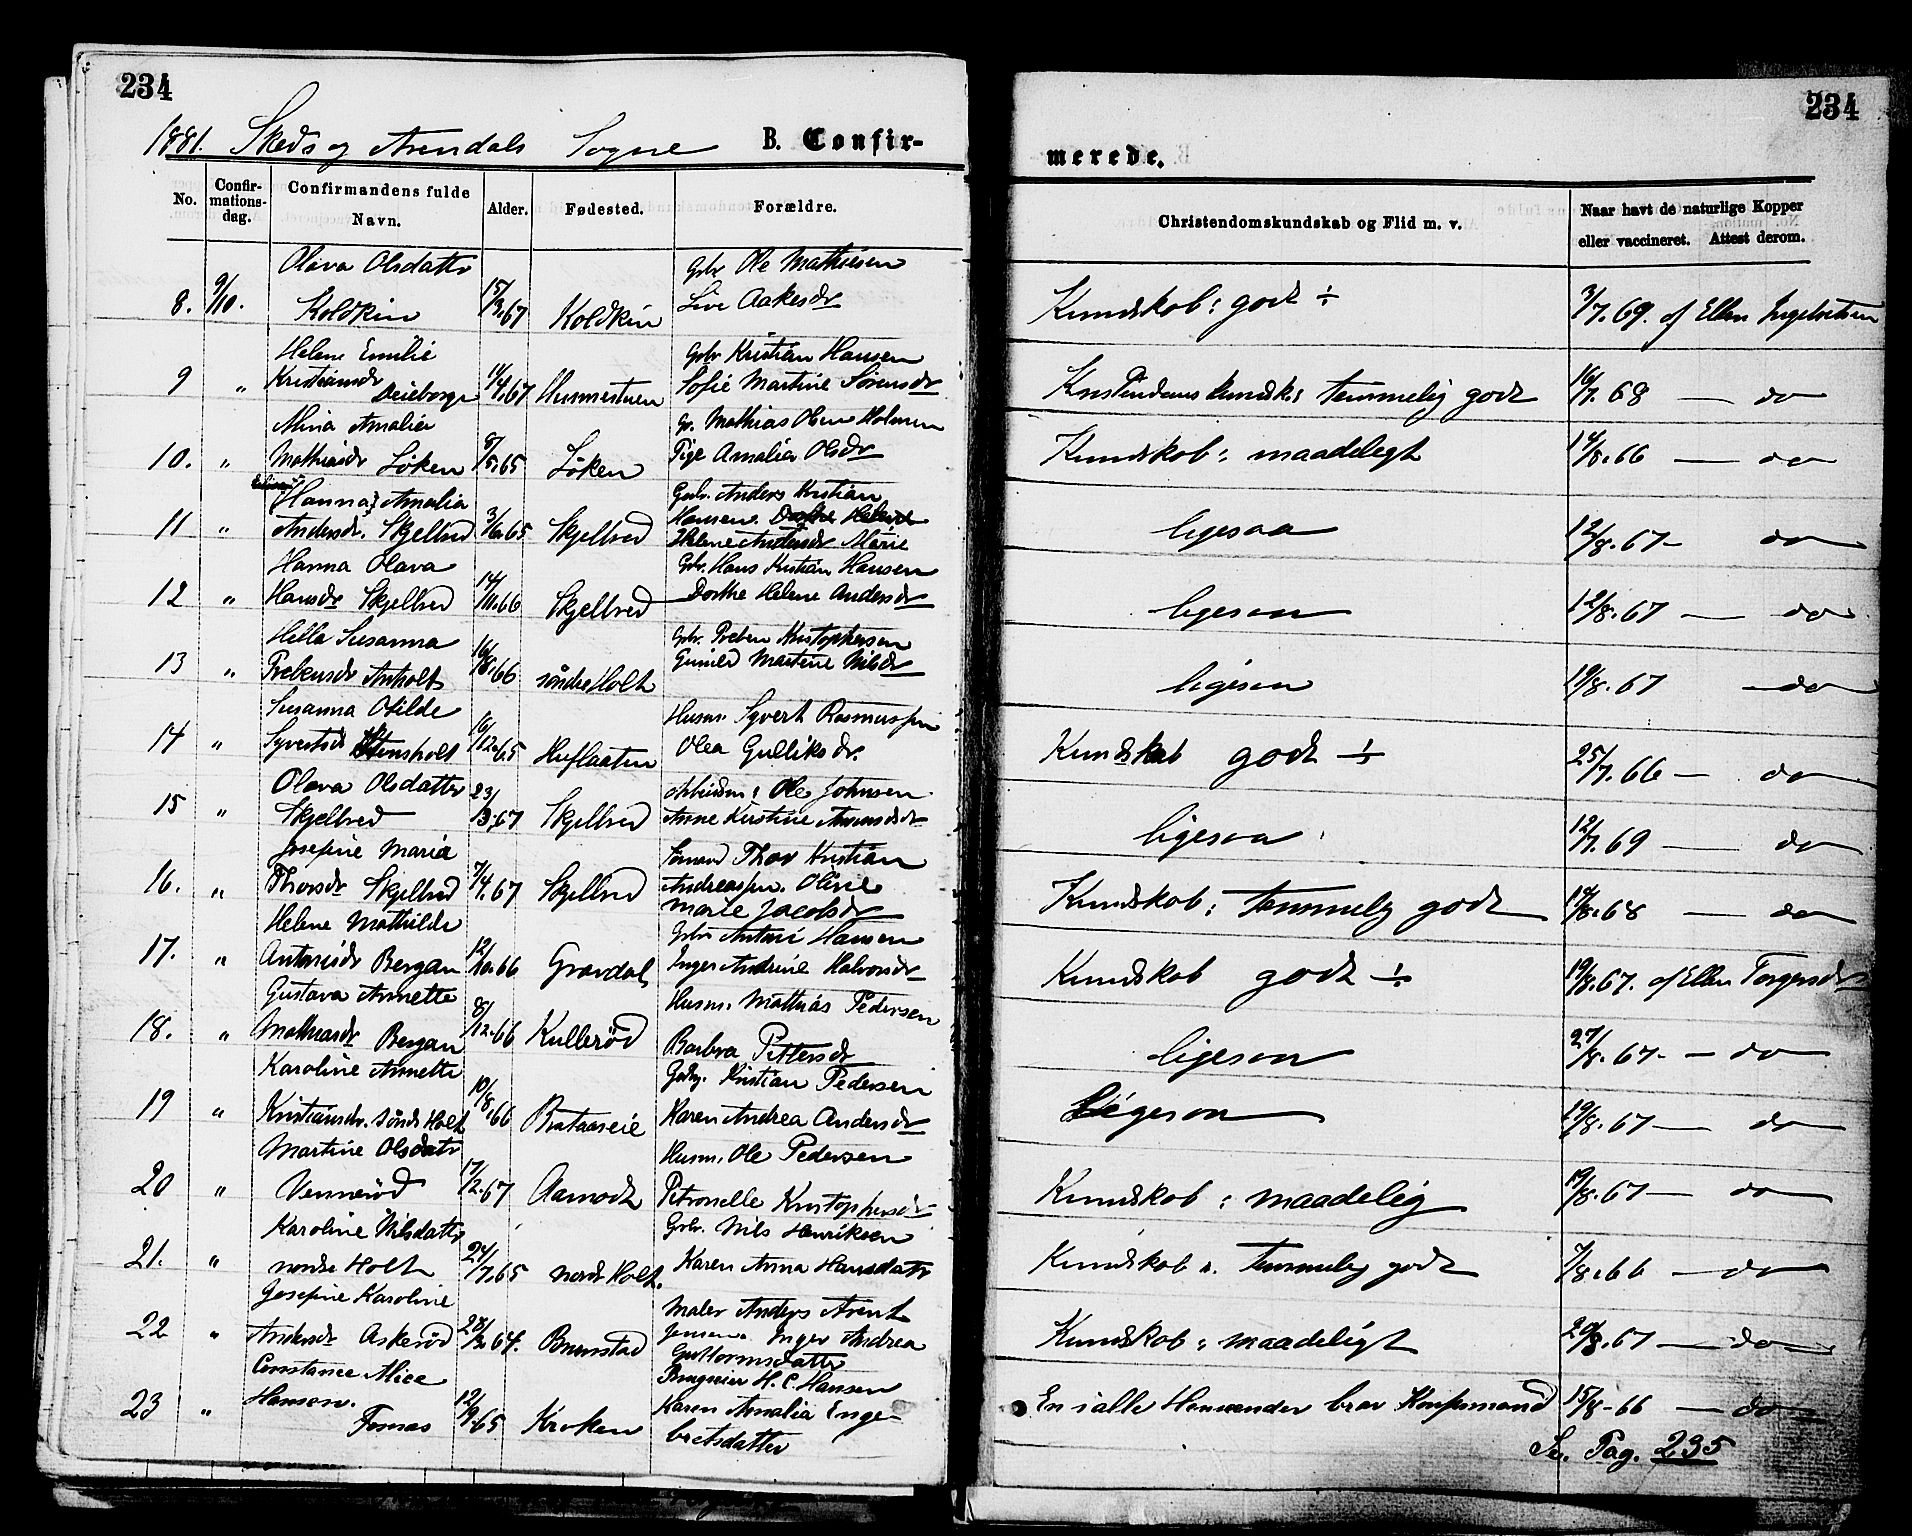 234
1881. Skeds og Arendals Sogne B. Confir-
No. Confir-mations-dag. Confirmandens fulde Navn. Alder. Fødested. Forældre.
Olava Olsdattr Gbr. Ole Mathiesen
8. 9/10. Koldkin 15/3.67 Koldkin Live Aakesdr
Helene Emilie Gbr Kristian Hansen
9 " Kristiansdr 11/4.67 Husmestuen Sofie Martine Sørensdr
Mina Amalia Gr. Mathias Olsen Holmen
10. " Mathiasdr Løken 8/5.65 Løken Pige Amalia Olsdr
Hanna Amalia Gbr. Anders Kristian
11 " Andersdr. Skjelbred 3/6.65 Skjelbred Hansen
Helene Andersdr Marie
Hanna Olava Gbr. Hans Kristian Hansen
12 " Hansdr Skjelbred 14/11.66 Skjelbred Dorthe Helene Andersdr
Hella Susanna Gbr. Preben Kristophersen
13 " Prebensdr Anholt 16/8.66 søndre Holt Gunild Martine Nilsdr
Susanna Otilde Husm. Syvert Rasmussen
14 " Syvertsdr Stensholt 16/12.65 Huflaaten Olea Gulliksdr.
Olava Olsdattr Arbeidsm: Ole Johnsen
15 " Skjelbred 23/3.67 Skjelbred Anne Kirstine
Josefine Maria Thor Kristian
16. " Thorsdr Skjelbred 7/4.67 Skjelbred Andreassen. Oline
Marie Jacobsdr
Helene Mathilde Gbr Antoni Hansen
17. " Antonisdr Bergan 12/10.66 Gravdal Inger Andrine Halvorsdr
Gustava Annette Husm. Mathias Pedersen
18. " Mathiasdr Bergan 8/12.66 Kullerød Barbra Pettersdr
Karoline Annette Gbr. Kristian Pedersen
19 " Kristiansdr. søndr Holt 10/8.66 Brataaseie Karen Andrea Andersdr
Martine Olsdatr Husm. Ole Pedersen
20 " Vennerød 17/2.67 Aamodt Petronelle Kristophersdr
Karoline Nilsdattr Gbr. Nils Henriksen
21. " nordre Holt 24/7.65 nordr Holt. Karen Anna Hansdatr
Josefine Karoline Maler Anders Arent
22 " Andersdr Askerød 28/2.64. Brunstad Jensen. Inger Andrea
Guttormsdatter
Constance Alice H. C. Hansen
23 " Hansen. 12/9.65 Kroken Karen Amalia Enge-
Fosnas bretsdatter
234
merede.
Christendomskundskab og Flid m. v. Naar havt de naturlige Kopper
eller vaccineret. Attest derom.
Kundskab: godt ÷ 3/7.69. af Ellen Ingebretsen
Kristendomskundsk: temmelig godt 16/7.68 — do
Kundskab: maadeligt 14/8.66 — do
ligesaa 12/8.67 — do
ligesaa 12/8.67 — do
ligesaa 19/8.67 — do
Kundskab godt ÷ 25/7.66 — do
ligesaa 12/7.69 — do
Kundskab: temmelig godt 14/8.68 — do
Kundskab godt ÷ 19/8.67. af Ellen Torgersdr
ligesaa 27/8.67 — do
Ligesaa 19/8.67 — do
Kundskab: maadelig 19/8.67 — do
Kundskab: temmelig godt 7/8.66 — do
Kundskab: maadeligt 20/8.67 — do
En i alle Henseender brav Konfirmand 15/8-66 — do
Se. Pag. 235